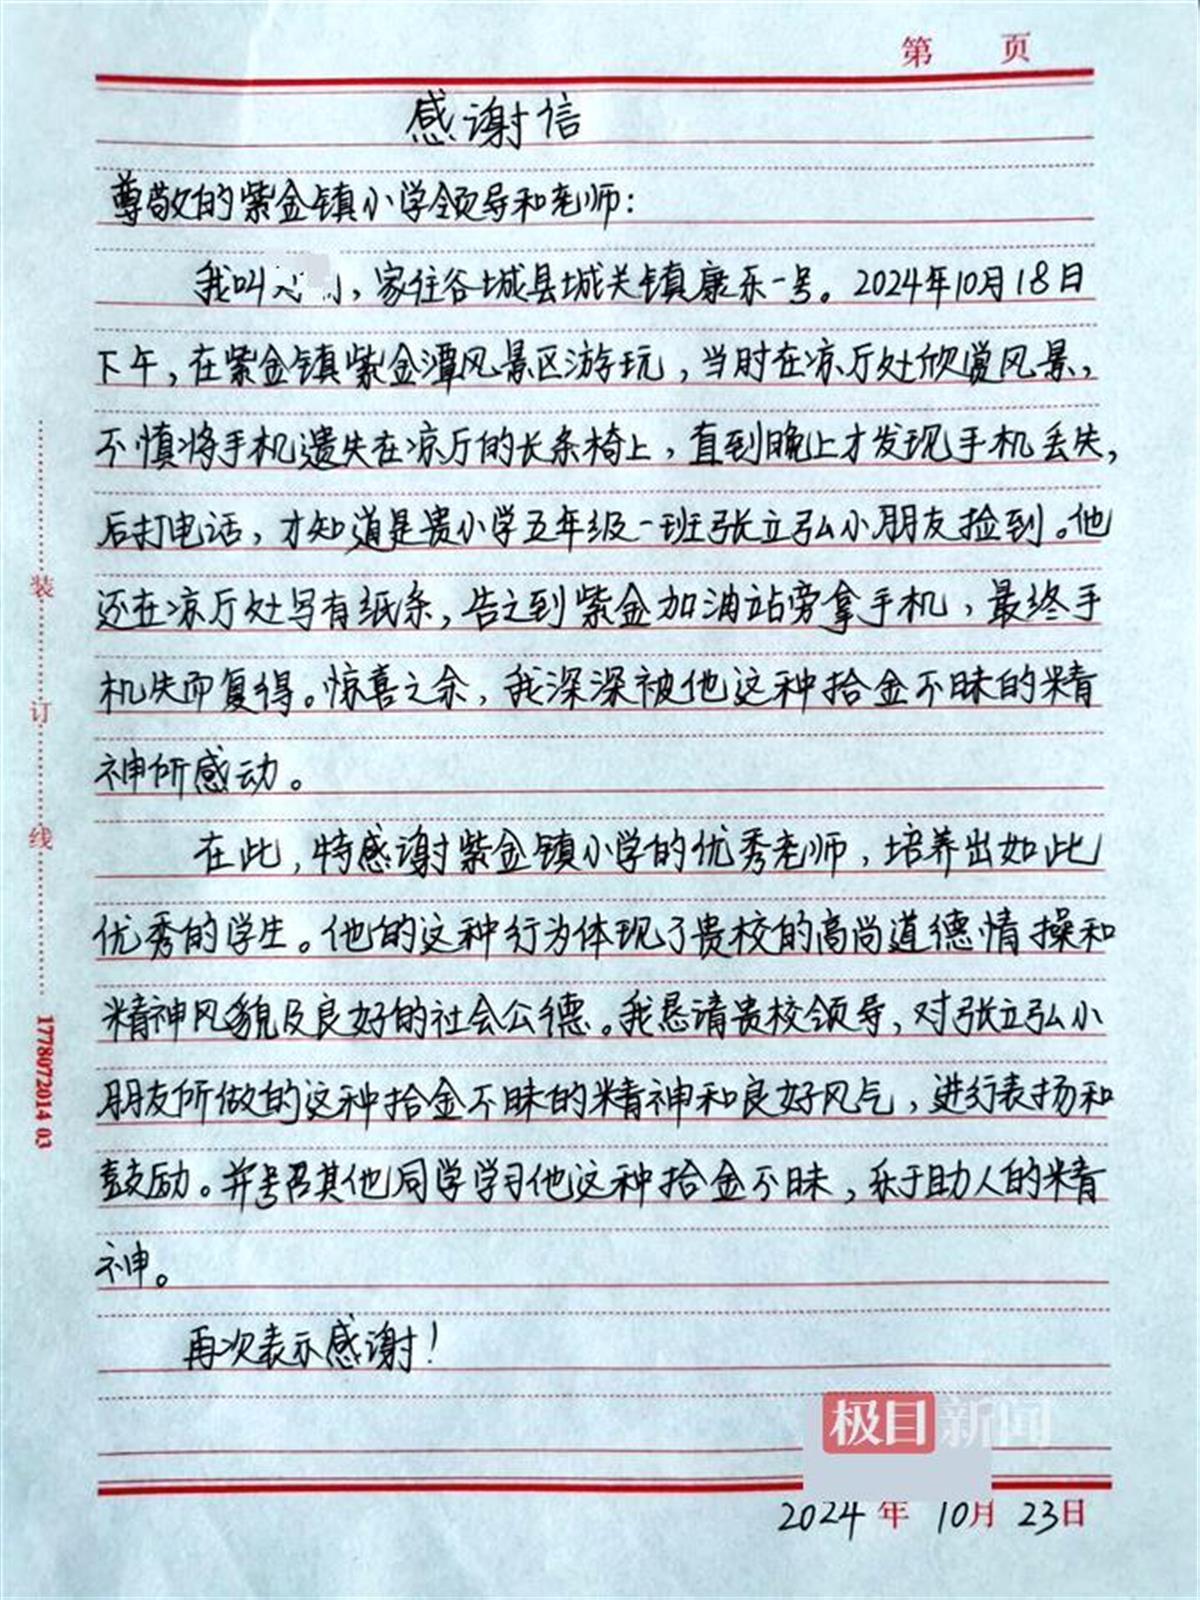 第 页
感谢信
尊敬的紫金镇小学领导和老师：
我叫，家住谷城县城关镇康乐一号。2024年10月18日
下午，在紫金镇紫金潭风景区游玩，当时在凉厅处欣赏风景，
不慎将手机遗失在凉厅的长条椅上，直到晚上才发现手机丢失，
后打电话，才知道是贵小学五年级一班张立弘小朋友捡到。他
还在凉厅处写有纸条，告之到紫金加油站旁拿手机，最终手
机失而复得。惊喜之余，我深深被他这种拾金不昧的精
神所感动。
在此，特感谢紫金镇小学的优秀老师，培养出如此
优秀的学生。他的这种行为体现了贵校的高尚道德情操和
精神风貌及良好的社会公德。我恳请贵校领导，对张立弘小
朋友所做的这种拾金不昧的精神和良好风气，进行表扬和
鼓励。并号召其他同学学习他这种拾金不昧，乐于助人的精
神。
再次表示感谢！
极目新闻
2024年10月23日
装订线
1778072014 03